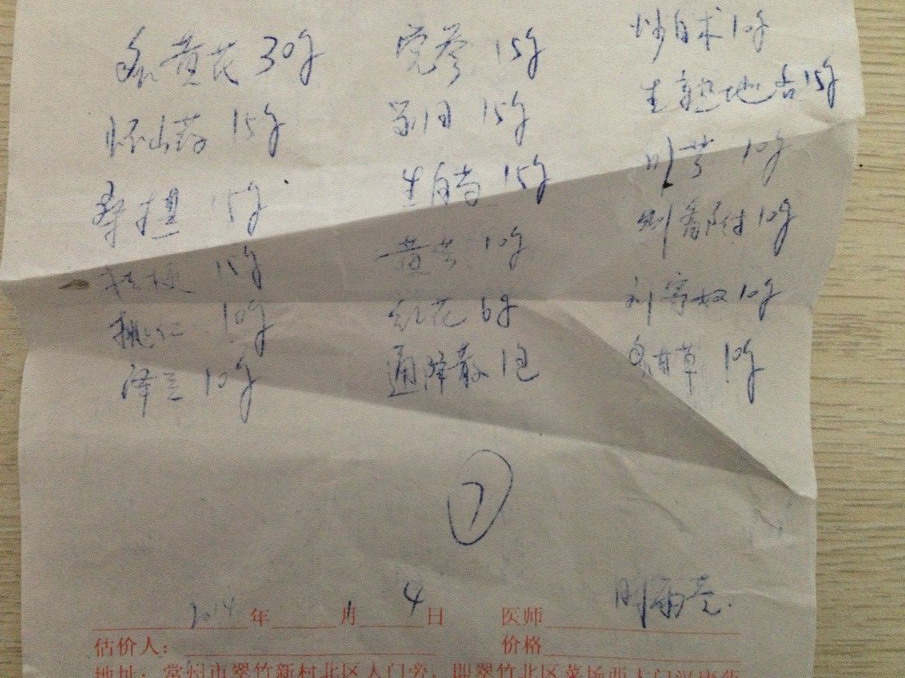 炙黄芪 30g 党参 15g 炒白术 10g
怀山药 15g 15g 生熟地各15g
桑椹 15g 生白芍 15g 川芎 10g
桔梗 15g 黄芩 10g 制香附 10g
桃仁 10g 红花 6g 刘寄奴 10g
泽兰 10g 通降散 1包 炙甘草 10g
7
2014 年 月 4 日 医师
估价人： 价格
地址：常州市翠竹新村北区大门旁，即翠竹北区菜场西大门